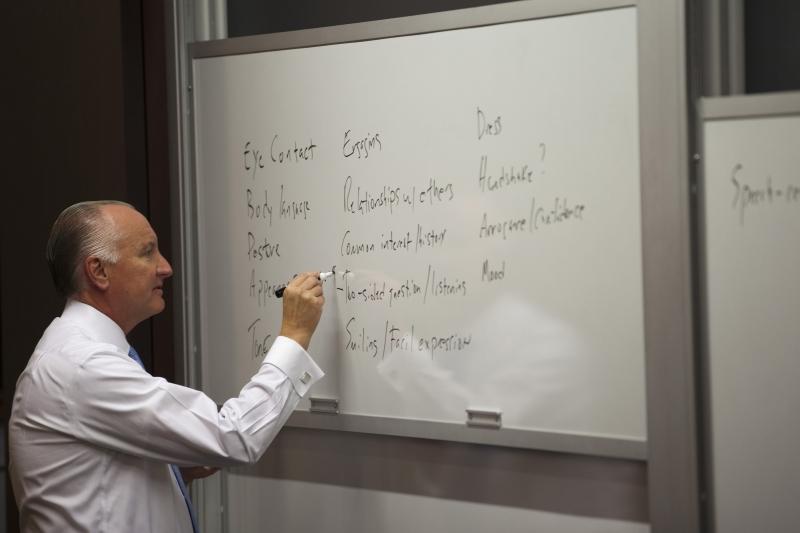 Eye Contact
Body language
Postive
Tone
Engaging
Relationships w/ others
Common interest/history
-Two-sided question/listening
Smiling/Facil expression
Dress
Handshake?
Arrogance/Confidence
Mood